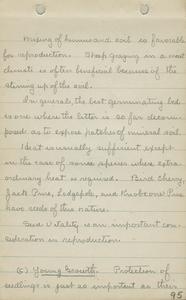 mixing of humus and soil is favorable
for reproduction. Sheep grazing in a moist
climate is often beneficial because of the
stirring up of the soil.
In general, the best germinating bed
is one where the litter is so far decom-
posed as to expose patches of mineral soil.
Heat is usually sufficient except
in the case of some species where extra-
ordinary heat is required. Bird Cherry,
Jack Pine, Lodgepole, and Knobcone Pine
have seeds of this nature.
Seed Vitality is an important con-
sideration in reproduction.
(c) Young Growth. Protection of
seedlings is just as important as their
95